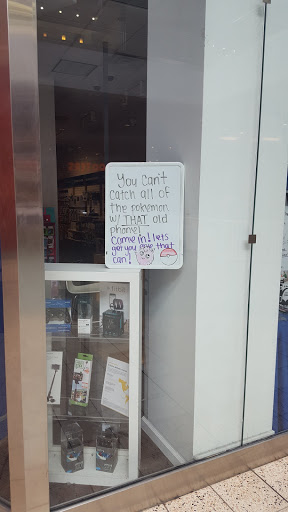 You can't
catch all of
the pokemon
w/ THAT old
phone!
Come in! lets
get you one that
can!